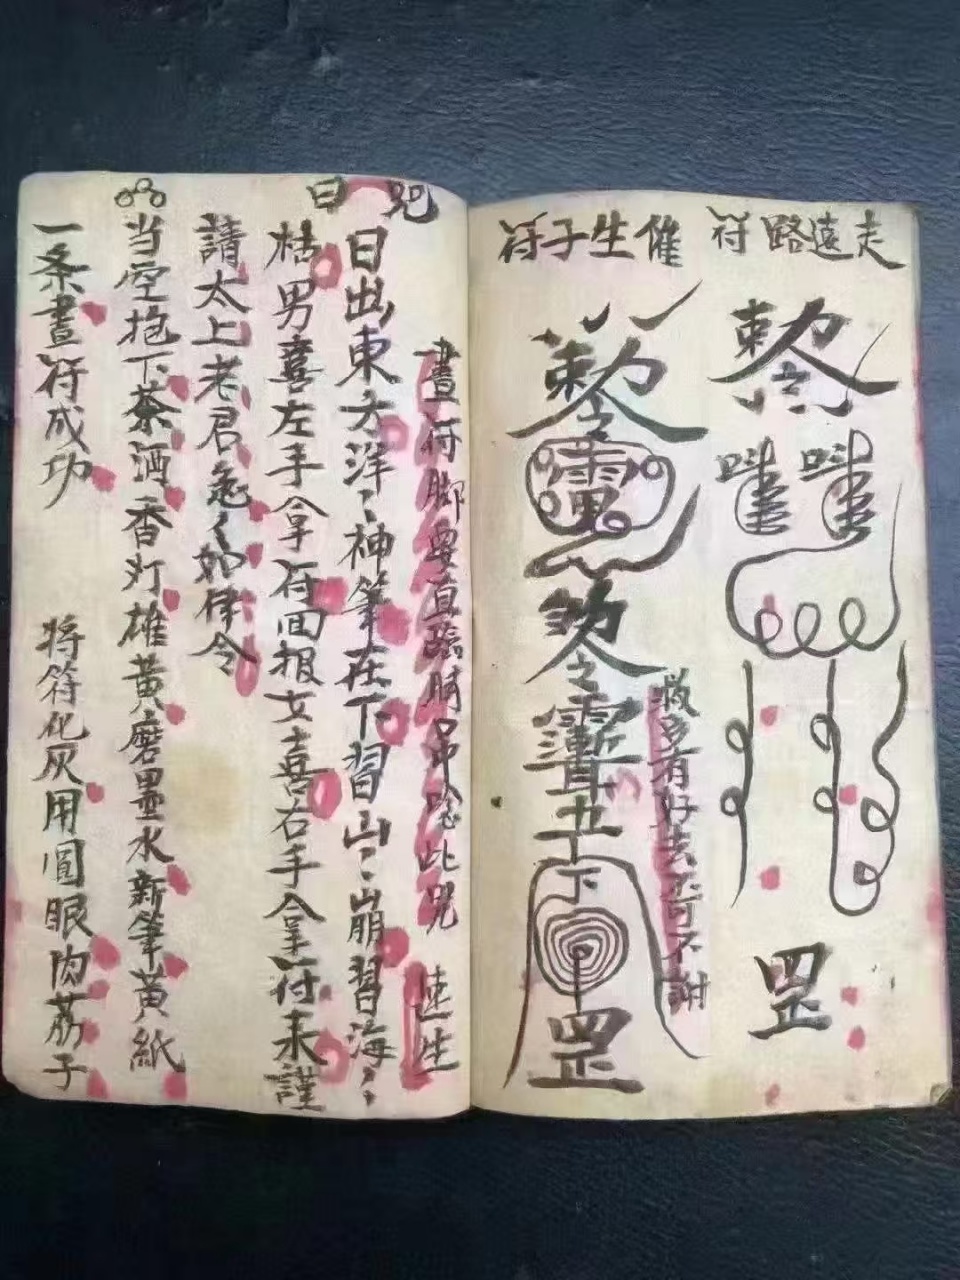 走遠路符
敕令
罡
催生子符
敕令
雷
敕令
下
罡
多有好去不可不謝
畫符脚要直臨 口中唸此咒 速生
咒曰
日出東方洋〻神筆在下習山〻崩習海〻
枯男喜左手拿符回报女喜右手拿符来謹
請太上老君急〻如律令
当空抱下茶酒香灯雄黄磨墨水新筆黄紙
一条畫符成功 将符化灰用圓眼肉荔子